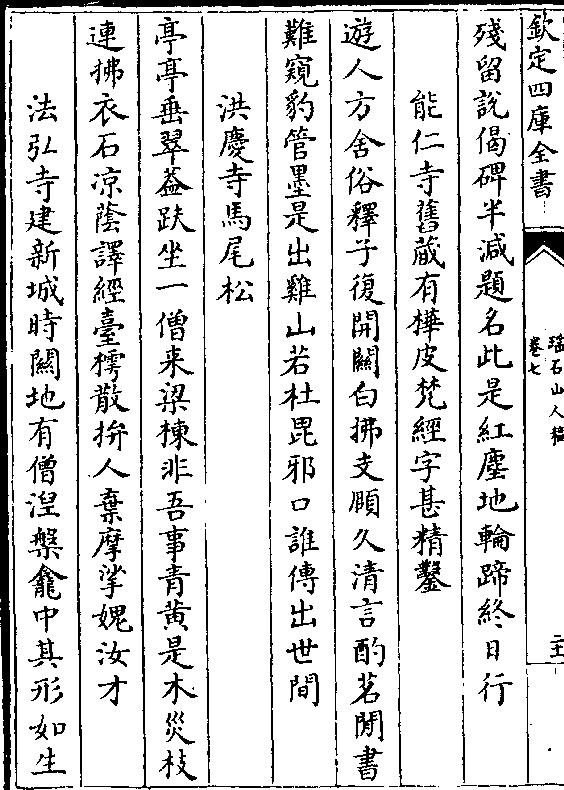 欽定四庫全書
瑤石山人稿
卷七
二十
殘留說偈碑半減題名此是紅塵地輪蹄終日行
能仁寺舊藏有樺皮梵經字甚精鑿
遊人方舍俗釋子復開關白拂支頤久清言酌茗閒書
難窺豹管墨是出雞山若杜毘邪口誰傳出世間
洪慶寺馬尾松
亭亭垂翠葢趺坐一僧来梁棟非吾事青黄是木災枝
連拂衣石凉蔭譯經臺樗散拚人棄摩挲媿汝才
法弘寺建新城時闢地有僧湼槃龕中其形如生